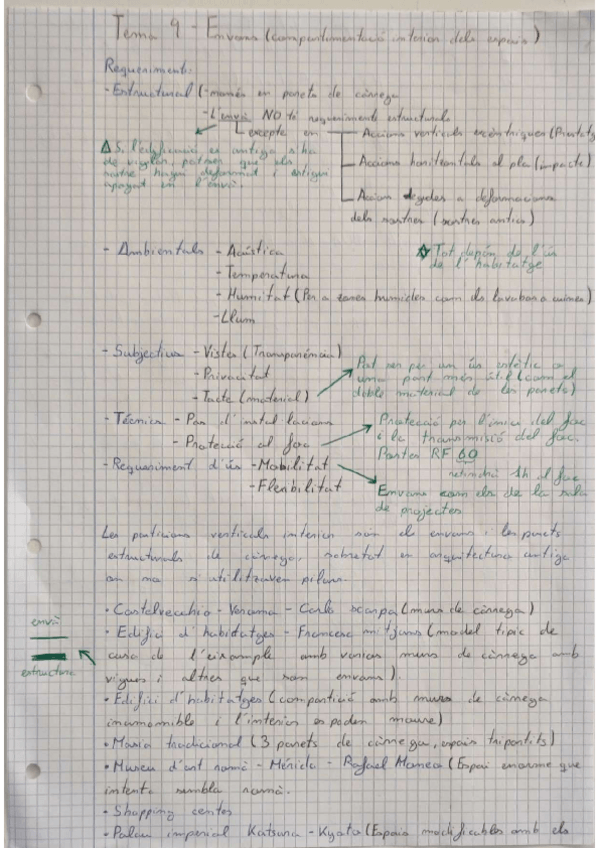 Tema 9 - Envans (compartimentació interior dels espais)
Requeriments:
- Estructural (- només en parets de càrrega
- L'envà NO té requeriments estructurals
excepte en
Accions verticals excèntriques (Prestatg
Accions horitzontals al pla (impacte)
Accions degudes a deformacions
dels sostres (sostres antics)
Δ Si l'edificació és antiga s'ha
de vigilar, potser que els
sostre hagin deformat i estigui
apoyat en l'envà.
- Ambientals - Acústica
- Temperatura
- Humitat (Per a zones humides com els lavabos o cuines)
- Llum
☆ Tot depèn de l'ús
de l'habitatge
- Subjectius - Vistes (Transparència)
- Privacitat
- Tacte (material)
Pot ser per un ús estètic o
una part més útil (com el
doble material de les parets)
- Tècnics - Pas d'instal·lacions
- Protecció al foc
Protecció per l'inici del foc
i la transmissió del foc.
Portes RF 60
1h el foc
- Requeriment d'ús - Mobilitat
- Flexibilitat
Envans com els de la sala
de projectes
Les particions verticals interiors són els envans i les parets
estructurals de càrrega, sobretot en arquitectura antiga
on no s'utilitzaven pilars.
• Castelvecchio - Verona - Carlo scarpa (murs de càrrega)
• Edifici d'habitatges - Francesc mitjans (model típic de
casa de l'eixample amb varios murs de càrrega amb
vigues i altres que són envans).
envà
estructura
• Edifici d'habitatges (compartició amb murs de càrrega
inamovible i l'interior es poden moure)
• Masia tradicional (3 parets de càrrega, espais tripartits)
• Museu d'art romà - Mérida - Rafael Moneo (Espai enorme que
intenta semblar romà.
- Shopping center
• Palau imperial Katsura - Kyoto (Espais modificables amb els